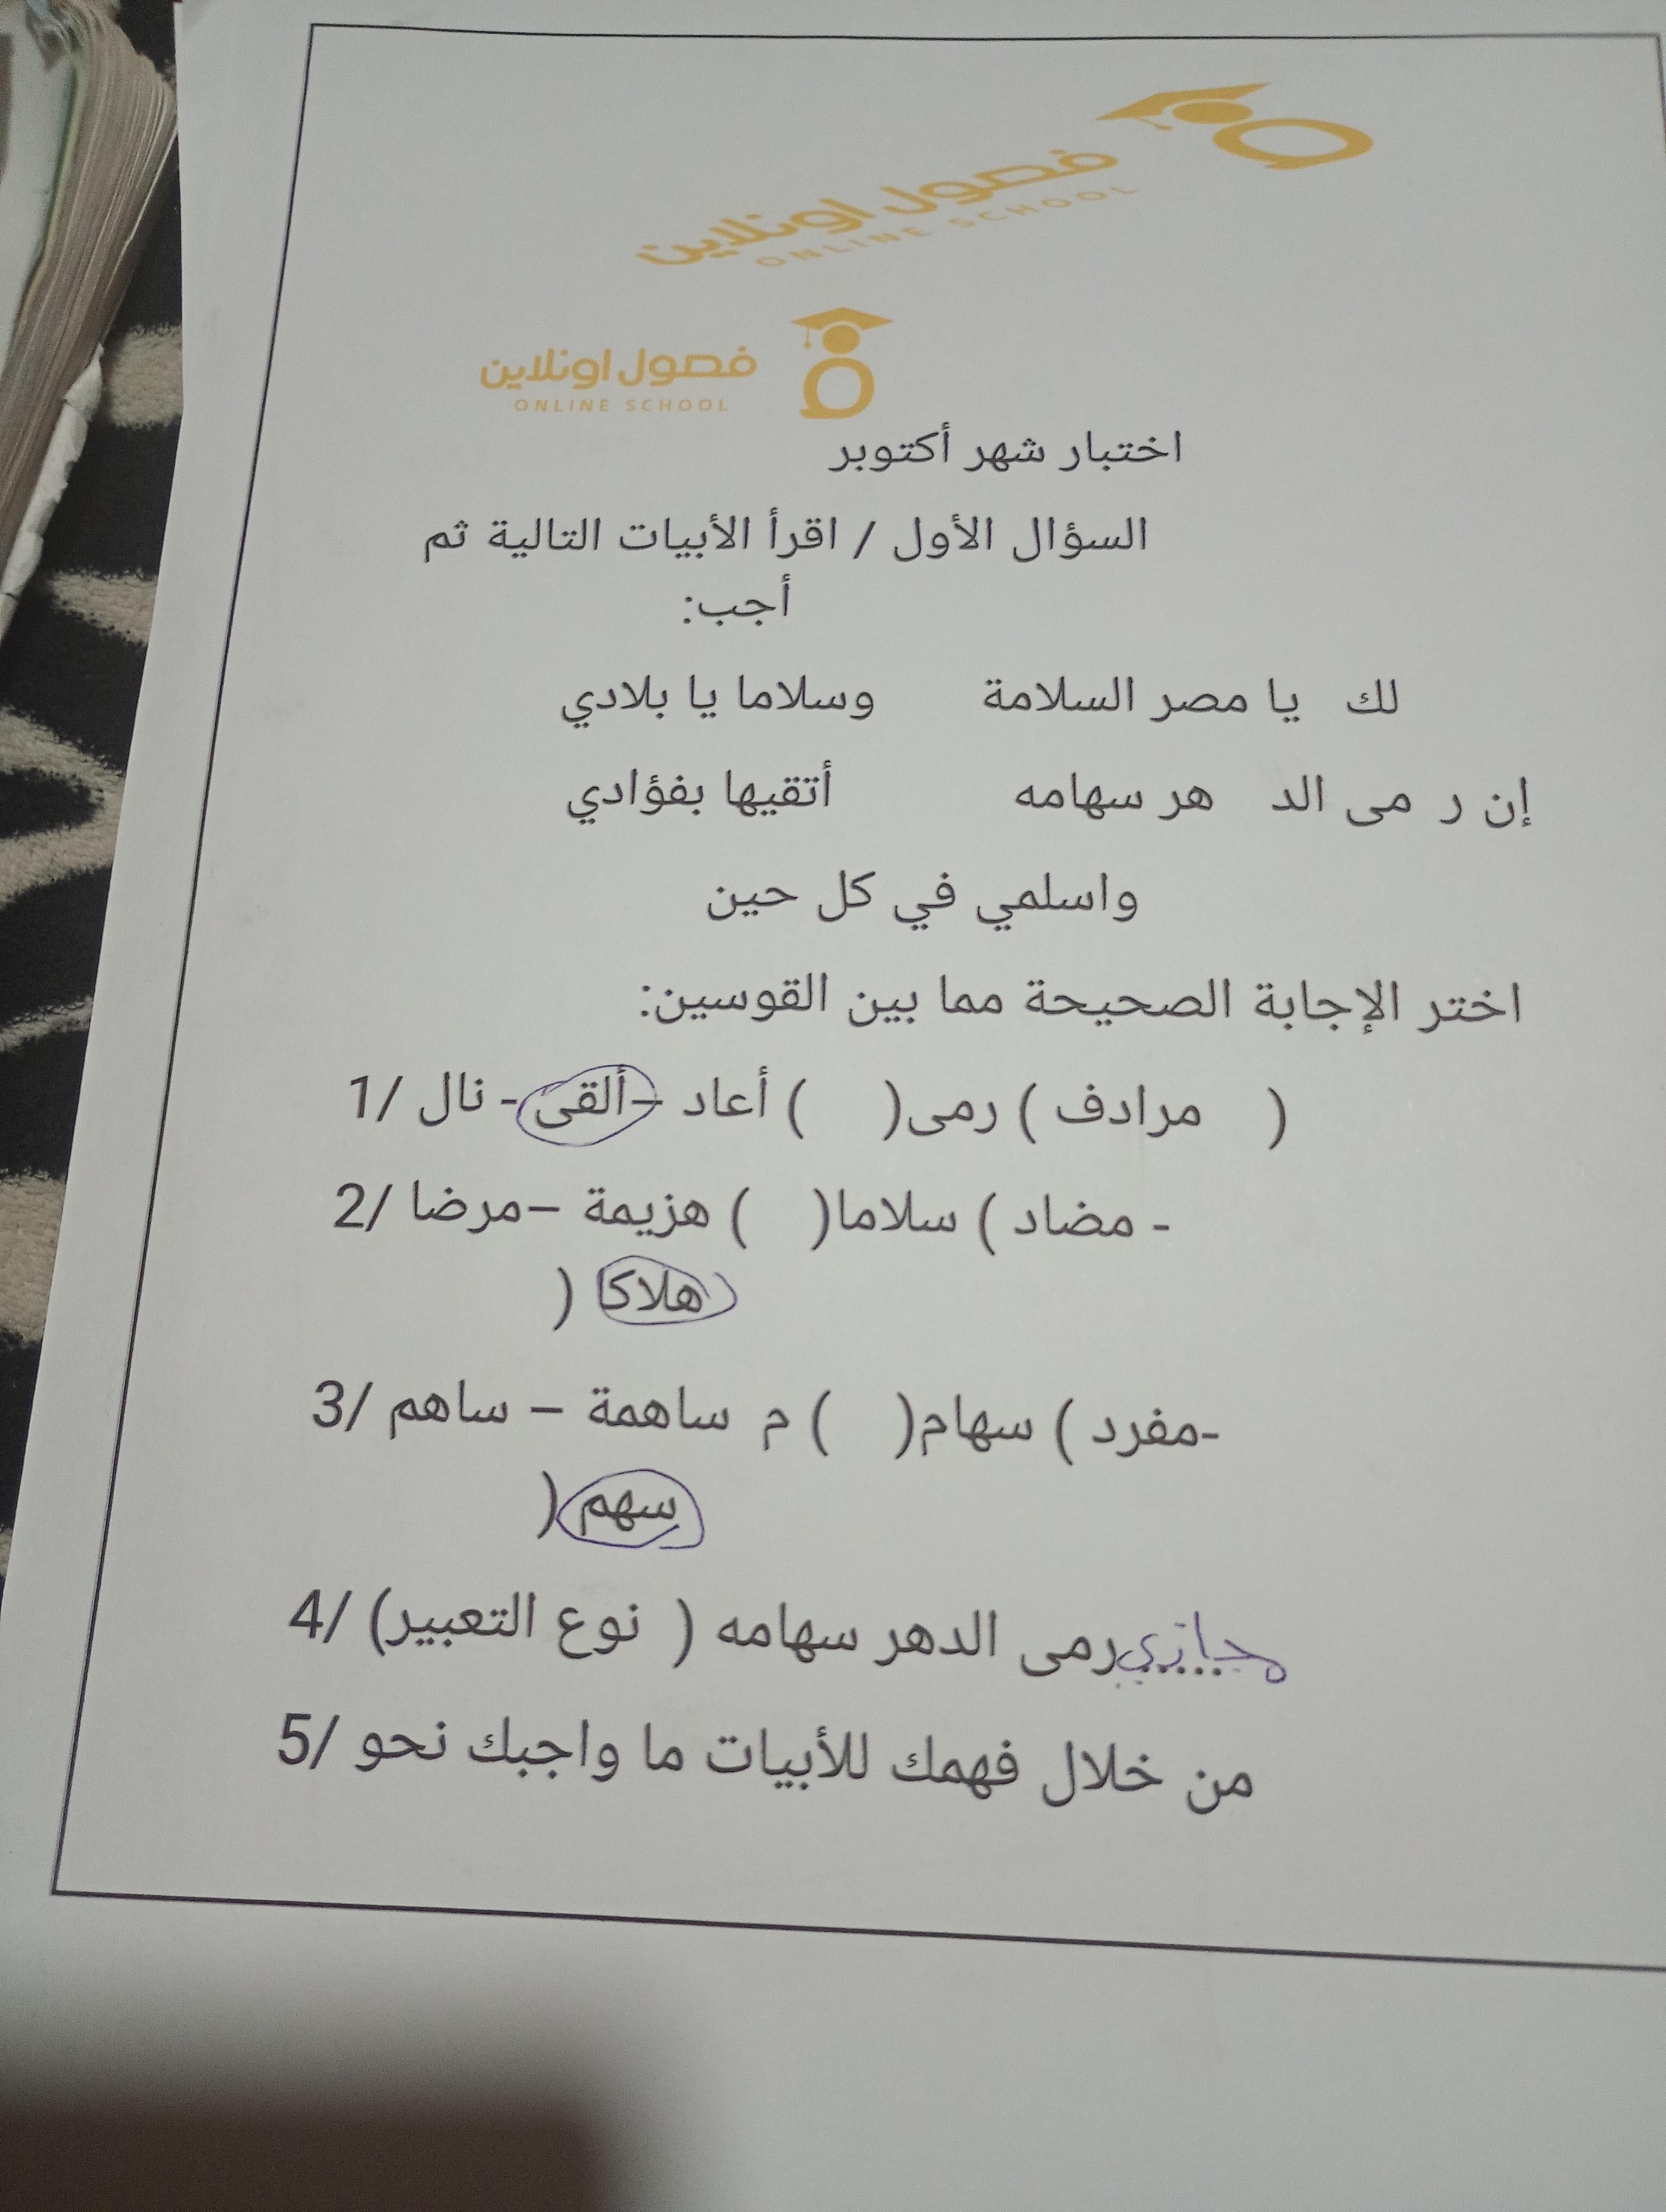 فصول اونلاين
ONLINE SCHOOL
فصول اونلاين
ONLINE SCHOOL
اختبار شهر أكتوبر
السؤال الأول / اقرأ الأبيات التالية ثم
أجب:
لك يا مصر السلامة وسلاما يا بلادي
إن ر مى الد هر سهامه أتقيها بفؤادي
واسلمي في كل حين
اختر الإجابة الصحيحة مما بين القوسين:
( مرادف ) رمى( ) أعاد –ألقى - نال /1
- مضاد ) سلاما( ) هزيمة –مرضا /2
هلاكا (
-مفرد ) سهام( ) م ساهمة – ساهم /3
سهم (
مجازي.....رمى الدهر سهامه ( نوع التعبير) /4
من خلال فهمك للأبيات ما واجبك نحو /5